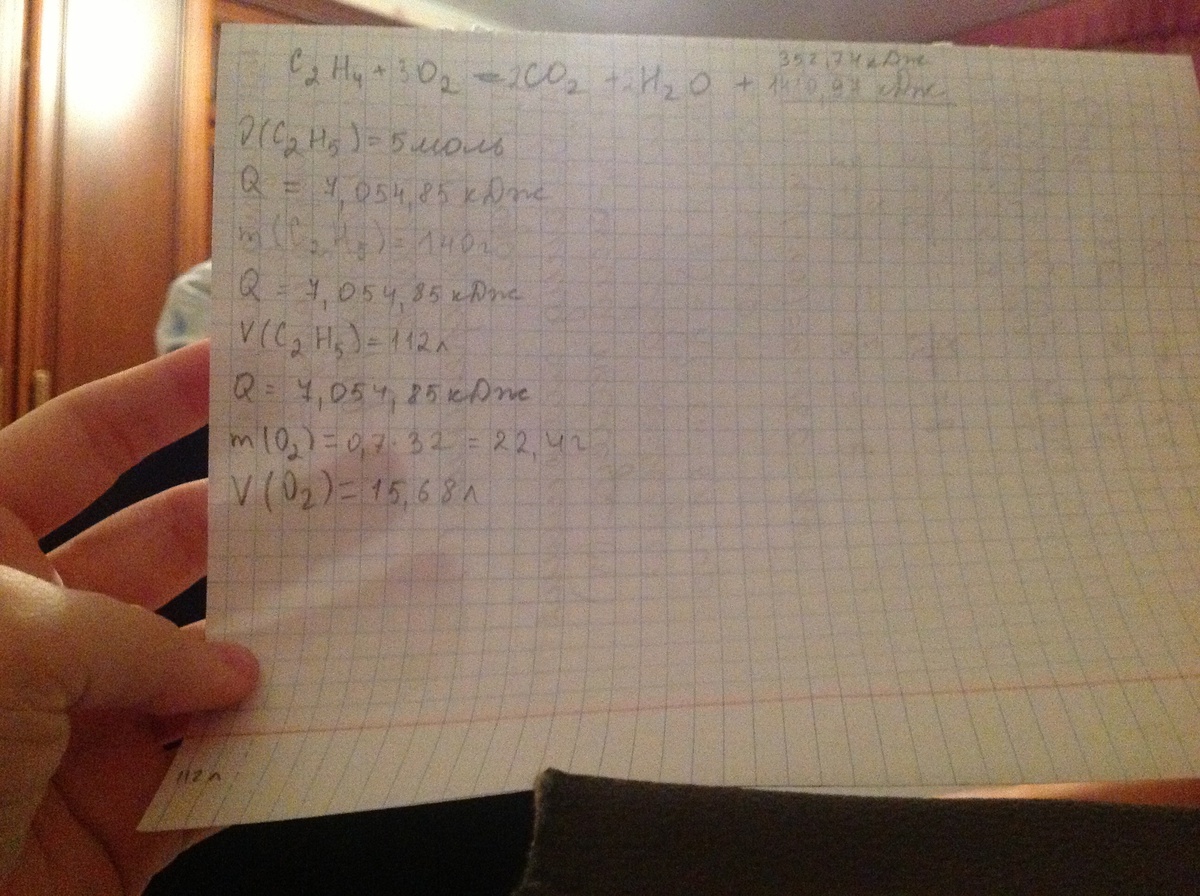 352,74 кДж
C₂H₄ + 3O₂ = 2CO₂ + 2H₂O + 1410,97 кДж
ν(C₂H₅) = 5 моль
Q = 7,054,85 кДж
m(C₂H₅) = 140г
Q = 7,054,85 кДж
V(C₂H₅) = 112л
Q = 7,054,85 кДж
m(O₂) = 0,7·32 = 22,4г
V(O₂) = 15,68л
112л